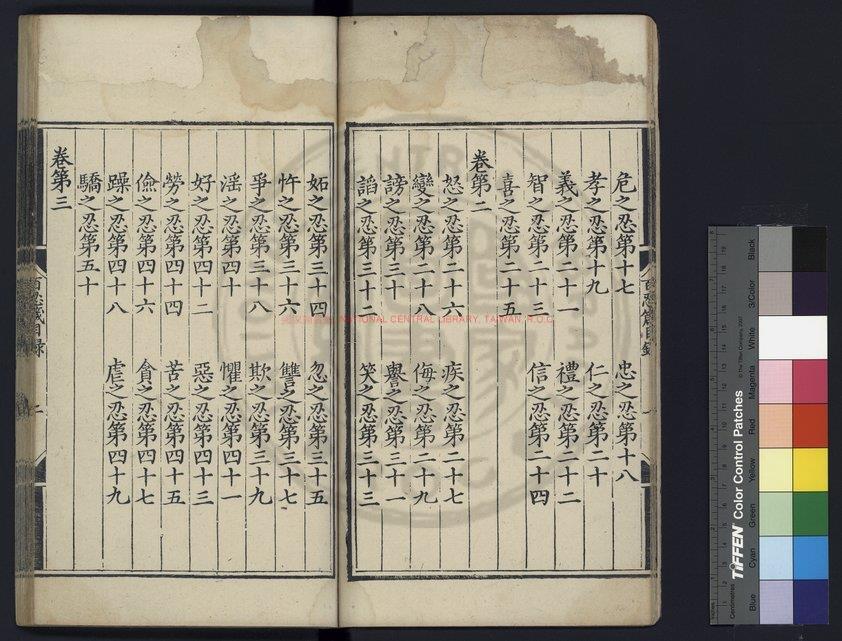 危之忍第十七　忠之忍第十八
孝之忍第十九　仁之忍第二十
義之忍第二十一　禮之忍第二十二
智之忍第二十三　信之忍第二十四
喜之忍第二十五
卷第二
怒之忍第二十六　疾之忍第二十七
變之忍第二十八　侮之忍第二十九
謗之忍第三十　譽之忍第三十一
謟之忍第三十二　笑之忍第三十三
妬之忍第三十四　忽之忍第三十五
忤之忍第三十六　讐之忍第三十七
爭之忍第三十八　欺之忍第三十九
滛之忍第四十　懼之忍第四十一
好之忍第四十二　惡之忍第四十三
勞之忍第四十四　苦之忍第四十五
儉之忍第四十六　貪之忍第四十七
躁之忍第四十八　虐之忍第四十九
驕之忍第五十
卷第三
百忍箴目録
NATIONAL CENTRAL LIBRARY, TAIWAN, R.O.C.
TIFFEN Color Control Patches
© The Tiffen Company, 2007
Centimetres
Blue
Cyan
Green
Yellow
Red
Magenta
White
3/Color
Black